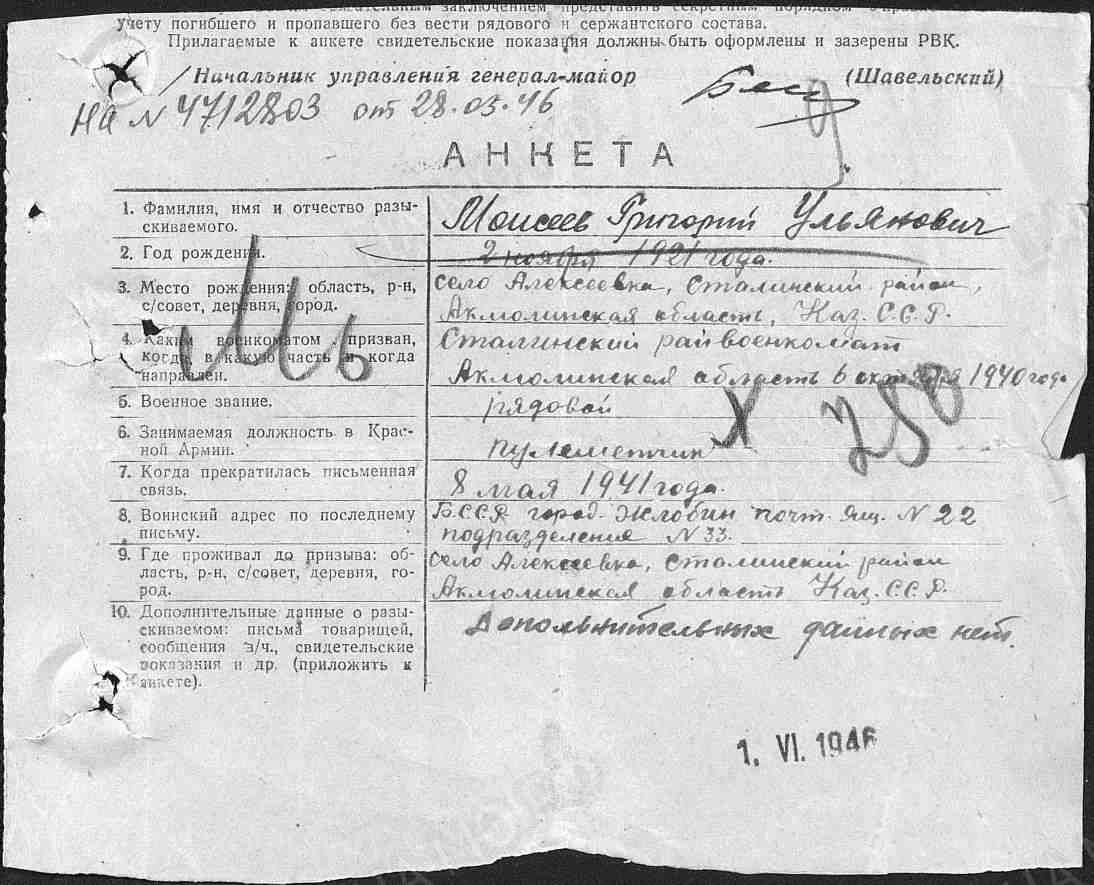 заключением представить секретным порядком
учету погибшего и пропавшего без вести рядового и сержантского состава.
Прилагаемые к анкете свидетельские показания должны быть оформлены и заверены РВК.
Начальник управления генерал-майор (Шавельский)
На № 4712803 от 28.05.46
АНКЕТА
1. Фамилия, имя и отчество разы-
скиваемого.
Моисеев Григорий Ульянович
2. Год рождения.
2 ноября 1921 года.
3. Место рождения: область, р-н,
с/совет, деревня, город.
село Алексеевка, Сталинский район,
Акмолинская область, Каз. С.С.Р.
4. Каким военкоматом призван,
когда, в какую часть и когда
направлен.
Сталинский райвоенкомат
Акмолинская область 6 октября 1940 года
5. Военное звание.
рядовой
6. Занимаемая должность в Крас-
ной Армии.
пулеметчик
7. Когда прекратилась письменная
связь.
8 мая 1941 года.
8. Воинский адрес по последнему
письму.
БССР город Жлобин почт. ящ. № 22
подразделения № 33.
9. Где проживал до призыва: об-
ласть, р-н, с/совет, деревня, го-
род.
село Алексеевка, Сталинский район
Акмолинская область Каз. С.С.Р.
10. Дополнительные данные о разы-
скиваемом: письма товарищей,
сообщения в/ч., свидетельские
показания и др. (приложить к
анкете).
Дополнительных данных нет.
1. VI. 1946